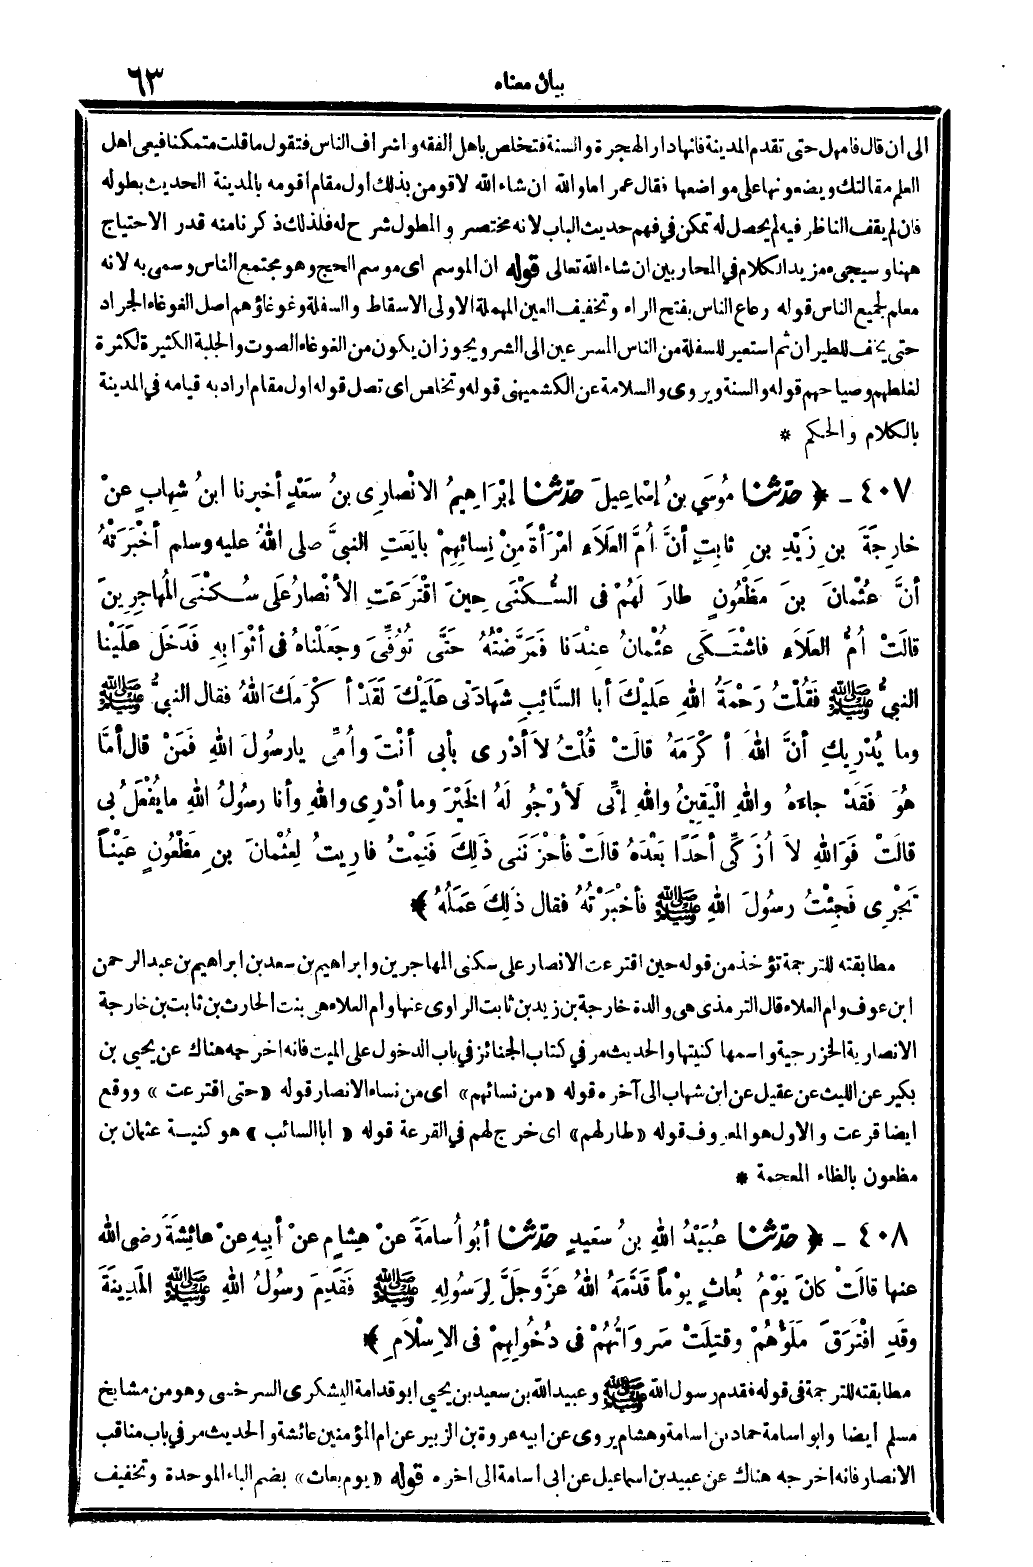 بيان معناه ٦٣
الى ان قال فامهل حتى تقدم المدينة فانها دار الهجرة والسنة فتخلص باهل الفقه واشراف الناس فتقول ما قلت متمكنا فيعى اهل
العلم مقالتك ويضعونها على مواضعها فقال عمر اما والله ان شاء الله لاقومن بذلك اول مقام اقومه بالمدينة الحديث بطوله
فان لم يقف الناظر فيه لم يحصل له تمكن في فهم حديث الباب لانه مختصر والمطول شرح له فلذلك ذكرنا منه قدر الاحتياج
ههنا وسيجىء مزيد الكلام في المحاربين ان شاء الله تعالى قوله ان الموسم اى موسم الحج وهو مجتمع الناس وسمى به لانه
معلم لجميع الناس قوله رعاع الناس بفتح الراء وتخفيف العين المهملة الاولى الاسقاط والسفلة وغوغاؤهم اصل الغوغاء الجراد
حتى يخف للطيران ثم استعير للسفلة من الناس المسرعين الى الشر ويجوز ان يكون من الغوغاء الصوت والجلبة الكثيرة لكثرة
لغلطهم وصياحهم قوله والسنة ويروى والسلامة عن الكشميهنى قوله وتخلص اى تصل قوله اول مقام اراد به قيامه في المدينة
بالكلام والحكم *
٤٠٧ - ﴿ حدّثنا مُوسَي بنُ إسْمَاعِيلَ حدّثنا إبْرَاهِيمُ الانْصارِى بنُ سَعَدٍ أخبرنا ابنُ شِهابٍ عنْ
خارِجَةَ بنِ زَيْدِ بنِ ثابِتٍ أنَّ أُمَّ العَلَاَءِ امْرَأةً مِنْ نِسائِهِمْ بايَعَتِ النبيَّ صلى اللهُ عليه وسلم أخْبَرَتْهُ
أنَّ عثْمَانَ بنَ مَظْعُونٍ طارَ لَهُمْ فى السُّكْنَى حِينَ اقْتَرَعَتِ الأنْصارُ علَى سُكْنَى المُهاجِرِينَ
قالَتْ أُمُّ العَلاَءِ فاشْتَكَى عُثْمانُ عِنْدَنا فَمَرَّضْتُهُ حَتَّى تُوُفِّىَ وجَعَلْناهُ فى أثْوَابِهِ فَدَخَلَ عَلَيْنا
النبيُّ ﷺ فَقُلْتُ رَحْمَةُ اللهِ عَلَيْكَ أبا السَّائِبِ شَهادَتى عَلَيْكَ لَقَدْ أكْرَمَكَ اللهُ فقال النبيُّ ﷺ
وما يُدْرِيكِ أنَّ اللهَ أكْرَمَهُ قالَتْ قُلْتُ لاَ أدْرى بأبى أنْتَ وأُمِّى يارسُولَ اللهِ فَمَنْ قال أمَّا
هُوَ فَقَدْ جاءَهُ واللهِ الْيَقِينُ واللهِ إنِّى لأَرْجُو لَهُ الخَيْرَ وما أدْرِى واللهِ وأنا رسُولُ اللهِ مايُفْعَلُ بى
قالَتْ فَوَاللهِ لاَ أُزَكِّى أحَدًا بَعْدَهُ قالَتْ فأحْزَنَنى ذلِكَ فَنِمْتُ فارِيتُ لِعُثْمانَ بنِ مَظْعُونٍ عَيْناً
تَجْرِى فَجِئْتُ رسُولَ اللهِ ﷺ فأخْبَرْتُهُ فقال ذَلِكَ عَمَلُهُ ﴾
مطابقته للترجمة تؤخذ من قوله حين اقترعت الانصار على سكنى المهاجرين وابراهيم بن سعد بن ابراهيم بن عبد الرحمن
ابن عوف وام العلاء قال الترمذى هى والدة خارجة بن زيد بن ثابت الراوى عنها وام العلاء هى بنت الحارث بن ثابت بن خارجة
الانصارية الخزرجية واسمها كنيتها والحديث مر في كتاب الجنائز في باب الدخول على الميت فانه اخرجه هناك عن يحيى بن
بكير عن الليث عن عقيل عن ابن شهاب الى آخره قوله «من نسائهم» اى من نساء الانصار قوله «حتى اقترعت» ووقع
ايضا قرعت والاول هو المعروف قوله «طار لهم» اى خرج لهم في القرعة قوله «ابا السائب» هو كنية عثمان بن
مظعون بالظاء المعجمة *
٤٠٨ - ﴿ حدّثنا عُبَيْدُ اللهِ بنُ سَعيدٍ حدّثنا أبُو أُسامَةَ عنْ هِشامٍ عنْ أبيهِ عنْ عائِشَةَ رضى الله
عنها قالَتْ كانَ يَوْمُ بُعاثٍ يوْماً قَدَّمَهُ اللهُ عَزَّ وجَلَّ لِرَسُولِهِ ﷺ فَقَدِمَ رسُولُ اللهِ ﷺ المَدِينَةَ
وقَدِ افْتَرَقَ مَلَؤُهُمْ وقتِلَتْ سَرَوَاتُهُمْ فى دُخُولِهِمْ فى الاِسْلاَمِ ﴾
مطابقته للترجمة فى قوله فقدم رسول الله ﷺ وعبيد الله بن سعيد بن يحيى ابو قدامة اليشكرى السرخسى وهو من مشايخ
مسلم ايضا وابو اسامة حماد بن اسامة وهشام يروى عن ابيه عروة بن الزبير عن ام المؤمنين عائشة والحديث مر في باب مناقب
الانصار فانه اخرجه هناك عن عبيد بن اسماعيل عن ابى اسامة الى اخره قوله «يوم بعاث» بضم الباء الموحدة وتخفيف